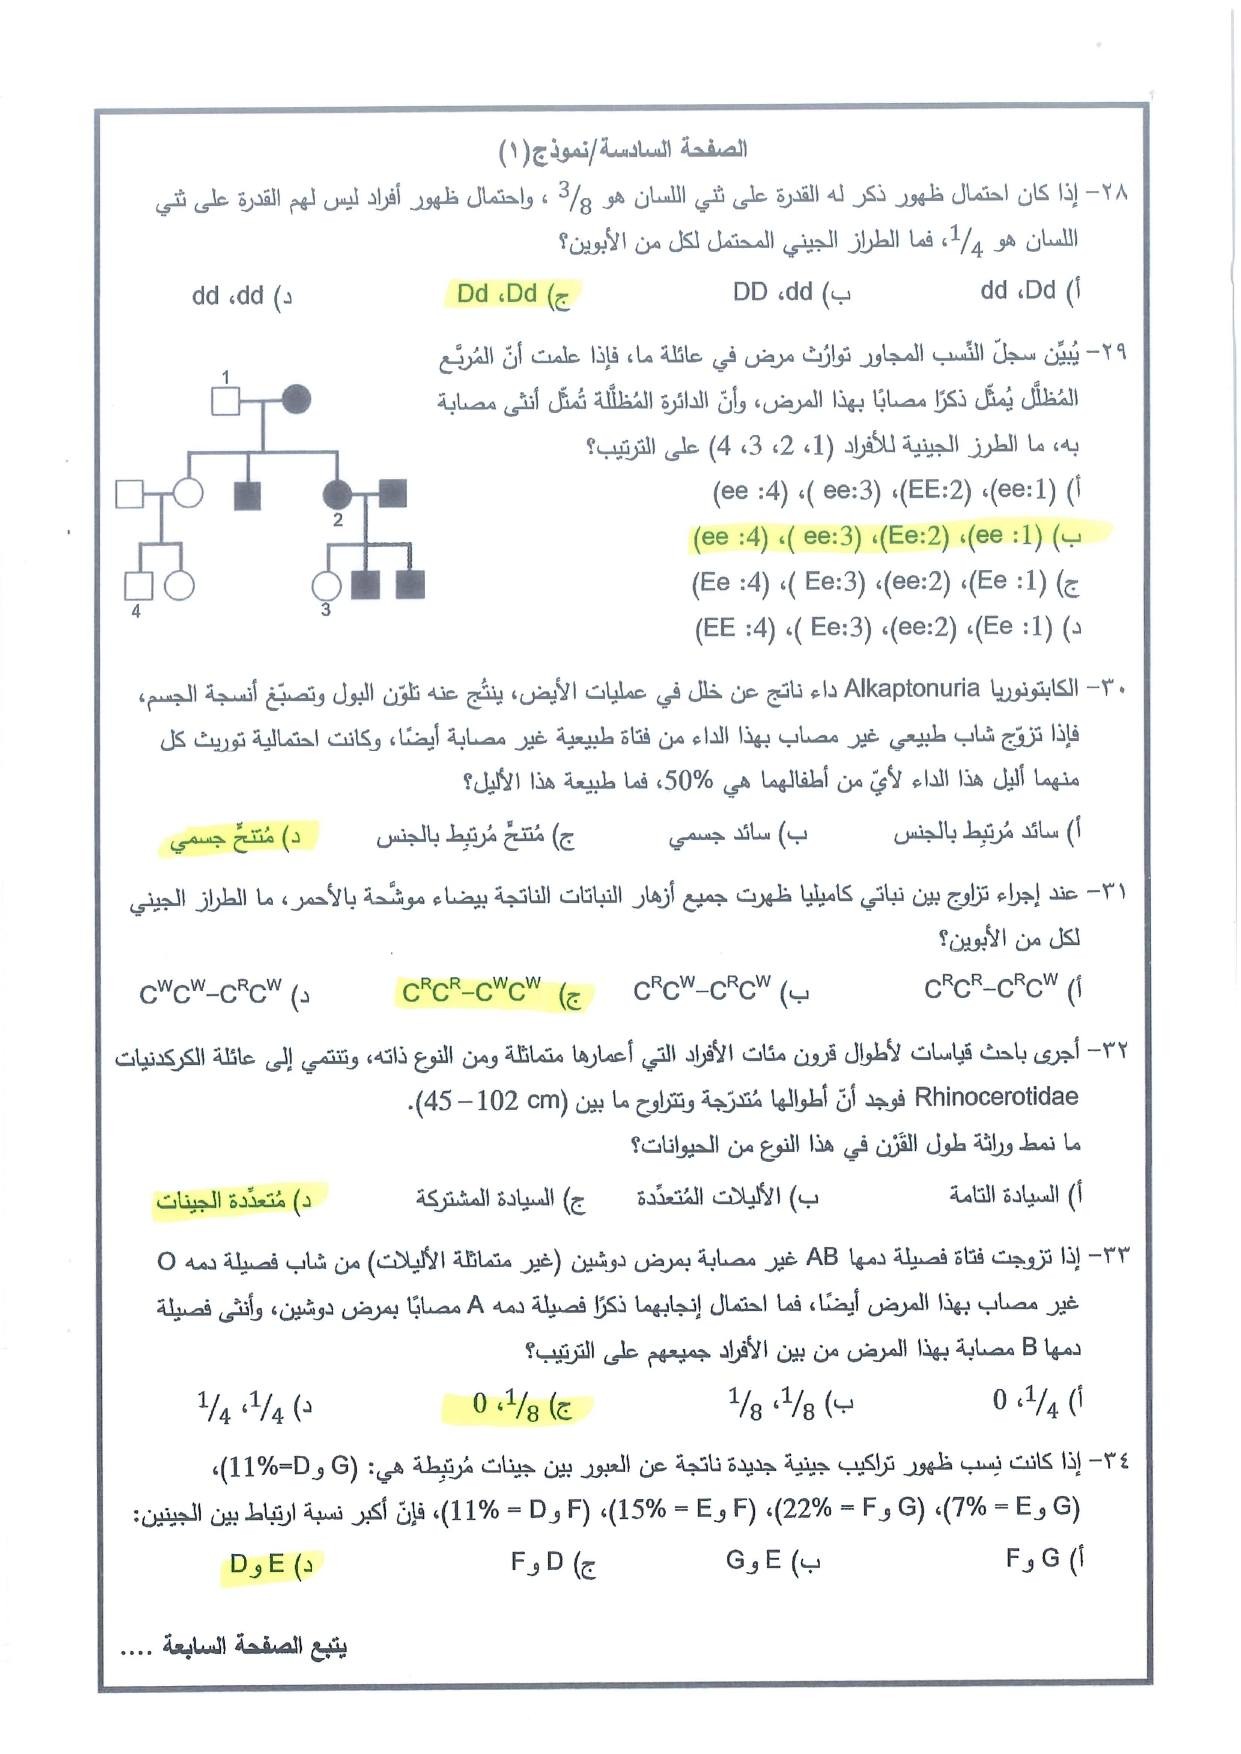 الصفحة السادسة/نموذج(١)
٢٨- إذا كان احتمال ظهور ذكر له القدرة على ثني اللسان هو 3/8 ، واحتمال ظهور أفراد ليس لهم القدرة على ثني
اللسان هو 1/4، فما الطراز الجيني المحتمل لكل من الأبوين؟
أ) dd ،Dd ب) DD ،dd ج) Dd ،Dd د) dd ،dd
٢٩- يُبيِّن سجلّ النَّسب المجاور توارُث مرض في عائلة ما، فإذا علمت أنّ المُربَّع
المُظلَّل يُمثِّل ذكرًا مصابًا بهذا المرض، وأنّ الدائرة المُظلَّلة تُمثِّل أنثى مصابة
به، ما الطرز الجينية للأفراد (1، 2، 3، 4) على الترتيب؟
أ) (ee:1)، (EE:2)، (ee:3 )، (ee :4)
ب) (ee :1)، (Ee:2)، (ee:3 )، (ee :4)
ج) (Ee :1)، (ee:2)، (Ee:3 )، (Ee :4)
د) (Ee :1)، (ee:2)، (Ee:3 )، (EE :4)
1
2
3
4
٣٠- الكابتونوريا Alkaptonuria داء ناتج عن خلل في عمليات الأيض، ينتُج عنه تلوّن البول وتصبّغ أنسجة الجسم،
فإذا تزوّج شاب طبيعي غير مصاب بهذا الداء من فتاة طبيعية غير مصابة أيضًا، وكانت احتمالية توريث كل
منهما أليل هذا الداء لأيّ من أطفالهما هي 50%، فما طبيعة هذا الأليل؟
أ) سائد مُرتبِط بالجنس ب) سائد جسمي ج) مُتنحٍّ مُرتبِط بالجنس د) مُتنحٍّ جسمي
٣١- عند إجراء تزاوج بين نباتي كاميليا ظهرت جميع أزهار النباتات الناتجة بيضاء موشَّحة بالأحمر، ما الطراز الجيني
لكل من الأبوين؟
أ) CRCR–CRCW ب) CRCW–CRCW ج) CRCR–CWCW د) CWCW–CRCW
٣٢- أجرى باحث قياسات لأطوال قرون مئات الأفراد التي أعمارها متماثلة ومن النوع ذاته، وتنتمي إلى عائلة الكركدنيات
Rhinocerotidae فوجد أنّ أطوالها مُتدرّجة وتتراوح ما بين (45 – 102 cm).
ما نمط وراثة طول القَرْن في هذا النوع من الحيوانات؟
أ) السيادة التامة ب) الأليلات المُتعدِّدة ج) السيادة المشتركة د) مُتعدِّدة الجينات
٣٣- إذا تزوجت فتاة فصيلة دمها AB غير مصابة بمرض دوشين (غير متماثلة الأليلات) من شاب فصيلة دمه O
غير مصاب بهذا المرض أيضًا، فما احتمال إنجابهما ذكرًا فصيلة دمه A مصابًا بمرض دوشين، وأنثى فصيلة
دمها B مصابة بهذا المرض من بين الأفراد جميعهم على الترتيب؟
أ) 1/4، 0 ب) 1/8، 1/8 ج) 1/8، 0 د) 1/4، 1/4
٣٤- إذا كانت نِسب ظهور تراكيب جينية جديدة ناتجة عن العبور بين جينات مُرتبِطة هي: (G وD=11%)،
(G وE = 7%)، (G وF = 22%)، (F وE = 15%)، (F وD = 11%)، فإنّ أكبر نسبة ارتباط بين الجينين:
أ) G وF ب) E وG ج) D وF د) E وD
يتبع الصفحة السابعة ....